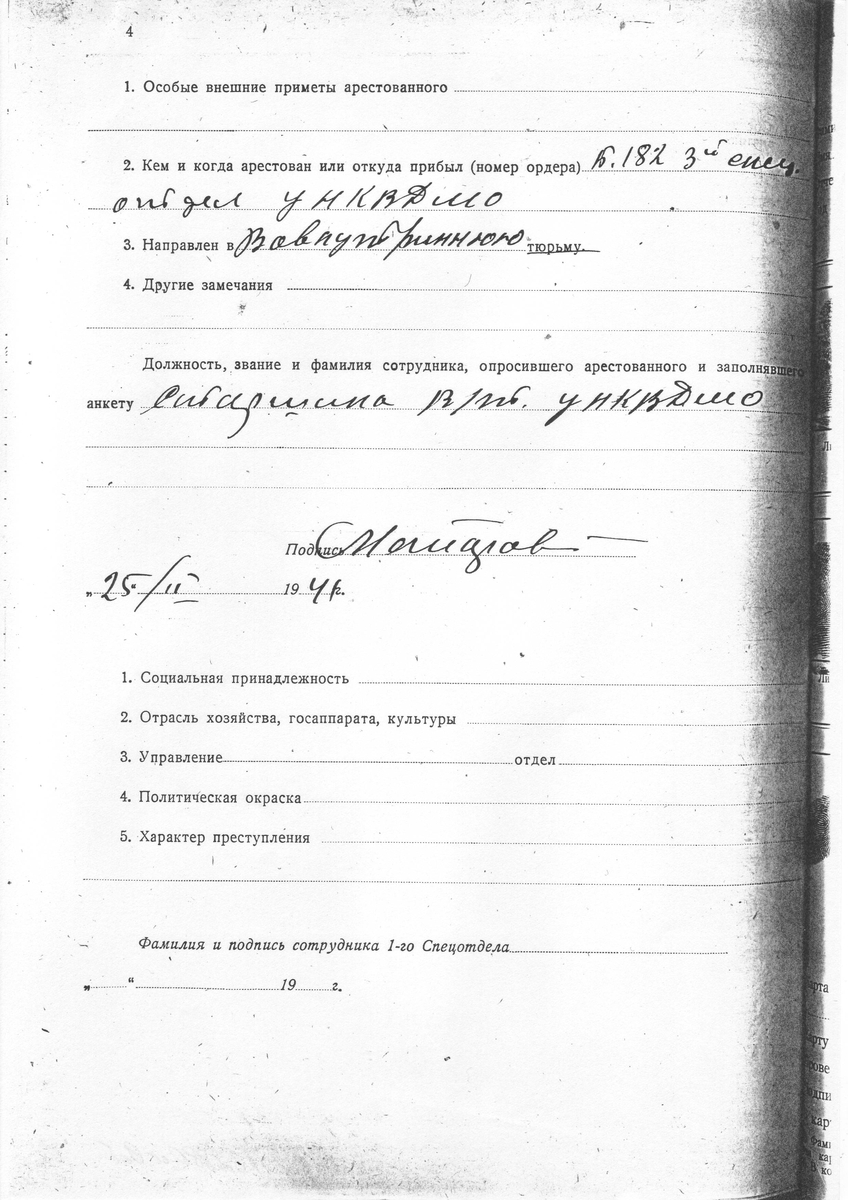 4
1. Особые внешние приметы арестованного
2. Кем и когда арестован или откуда прибыл (номер ордера) Б. 182 3й спец.
отдел УНКВДМО
3. Направлен в Вовнутринную тюрьму.
4. Другие замечания
Должность, звание и фамилия сотрудника, опросившего арестованного и заполнявшего
анкету Старшина В/т. УНКВДМО
Подпись
„25/II 194 г.
1. Социальная принадлежность
2. Отрасль хозяйства, госаппарата, культуры
3. Управление отдел
4. Политическая окраска
5. Характер преступления
Фамилия и подпись сотрудника 1-го Спецотдела
„ “ 19 г.